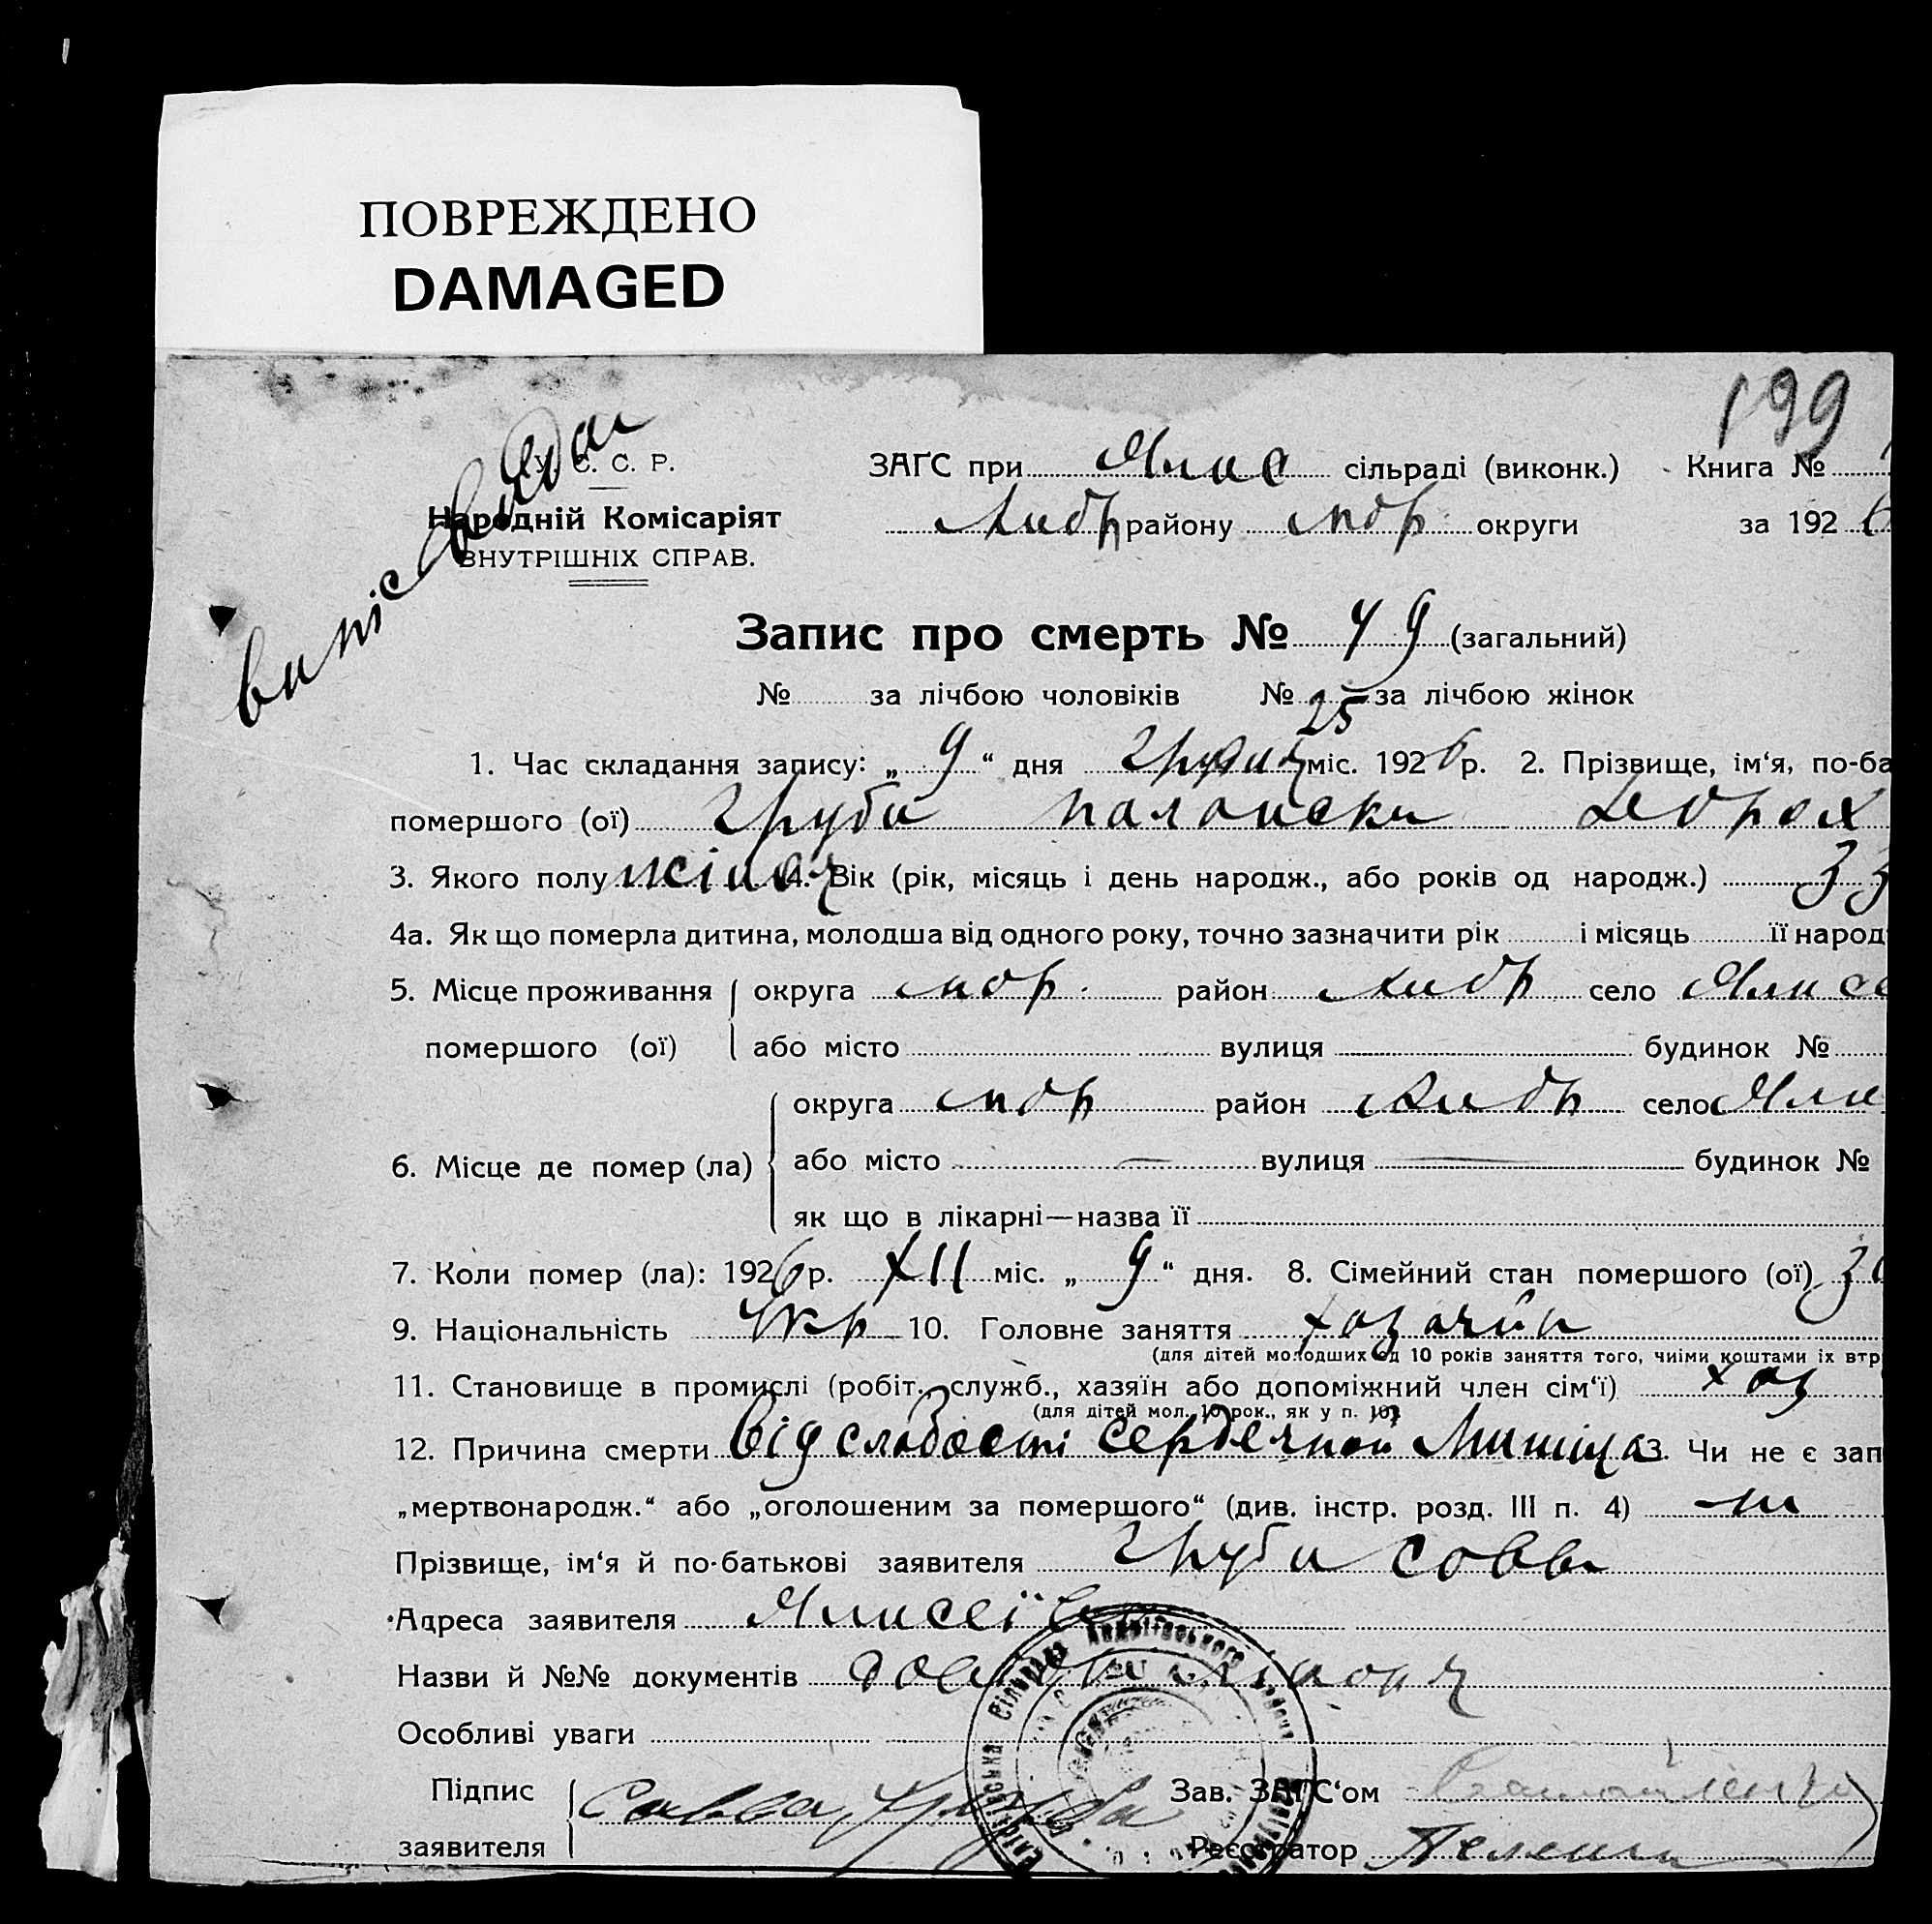 ПОВРЕЖДЕНО
DAMAGED
199
У. С. С. Р.
Народній Комісаріят
ВНУТРІШНІХ СПРАВ.
ЗАГС при Ялис сільраді (виконк.) Книга №
Андр району мор округи за 1926
Запис про смерть № 49 (загальний)
№ за лічбою чоловіків № 25 за лічбою жінок
1. Час складання запису: „9“ дня грудня міс. 1926 р. 2. Прізвище, ім‘я, по-ба
помершого (ої) Груба
3. Якого полу жіноч 4. Вік (рік, місяць і день народж., або років од народж.) 33
4а. Як що померла дитина, молодша від одного року, точно зазначити рік і місяць її народ
5. Місце проживання округа мор. район Андр село Ялисе
помершого (ої) або місто вулиця будинок №
округа мор район Андр село Яли
6. Місце де помер (ла) або місто — вулиця — будинок №
як що в лікарні—назва її
7. Коли помер (ла): 1926 р. XII міс. „9“ дня. 8. Сімейний стан помершого (ої) за
9. Національність Укр 10. Головне заняття
(для дітей молодших од 10 років заняття того, чиїми коштами їх втр
11. Становище в промислі (робіт., служб., хазяїн або допоміжний член сім‘ї) хаз
(для дітей мол. 10 рок., як у п. 10)
12. Причина смерти від слабости сердечной Мишци 13. Чи не є зап
„мертвонародж.“ або „оголошеним за помершого“ (див. інстр. розд. III п. 4) ні
Прізвище, ім‘я й по-батькові заявителя Груба Савва
Адреса заявителя Ялисеївка
Назви й №№ документів
Особливі уваги
Підпис Савва Груба Зав. ЗАГС‘ом
заявителя Реєстратор